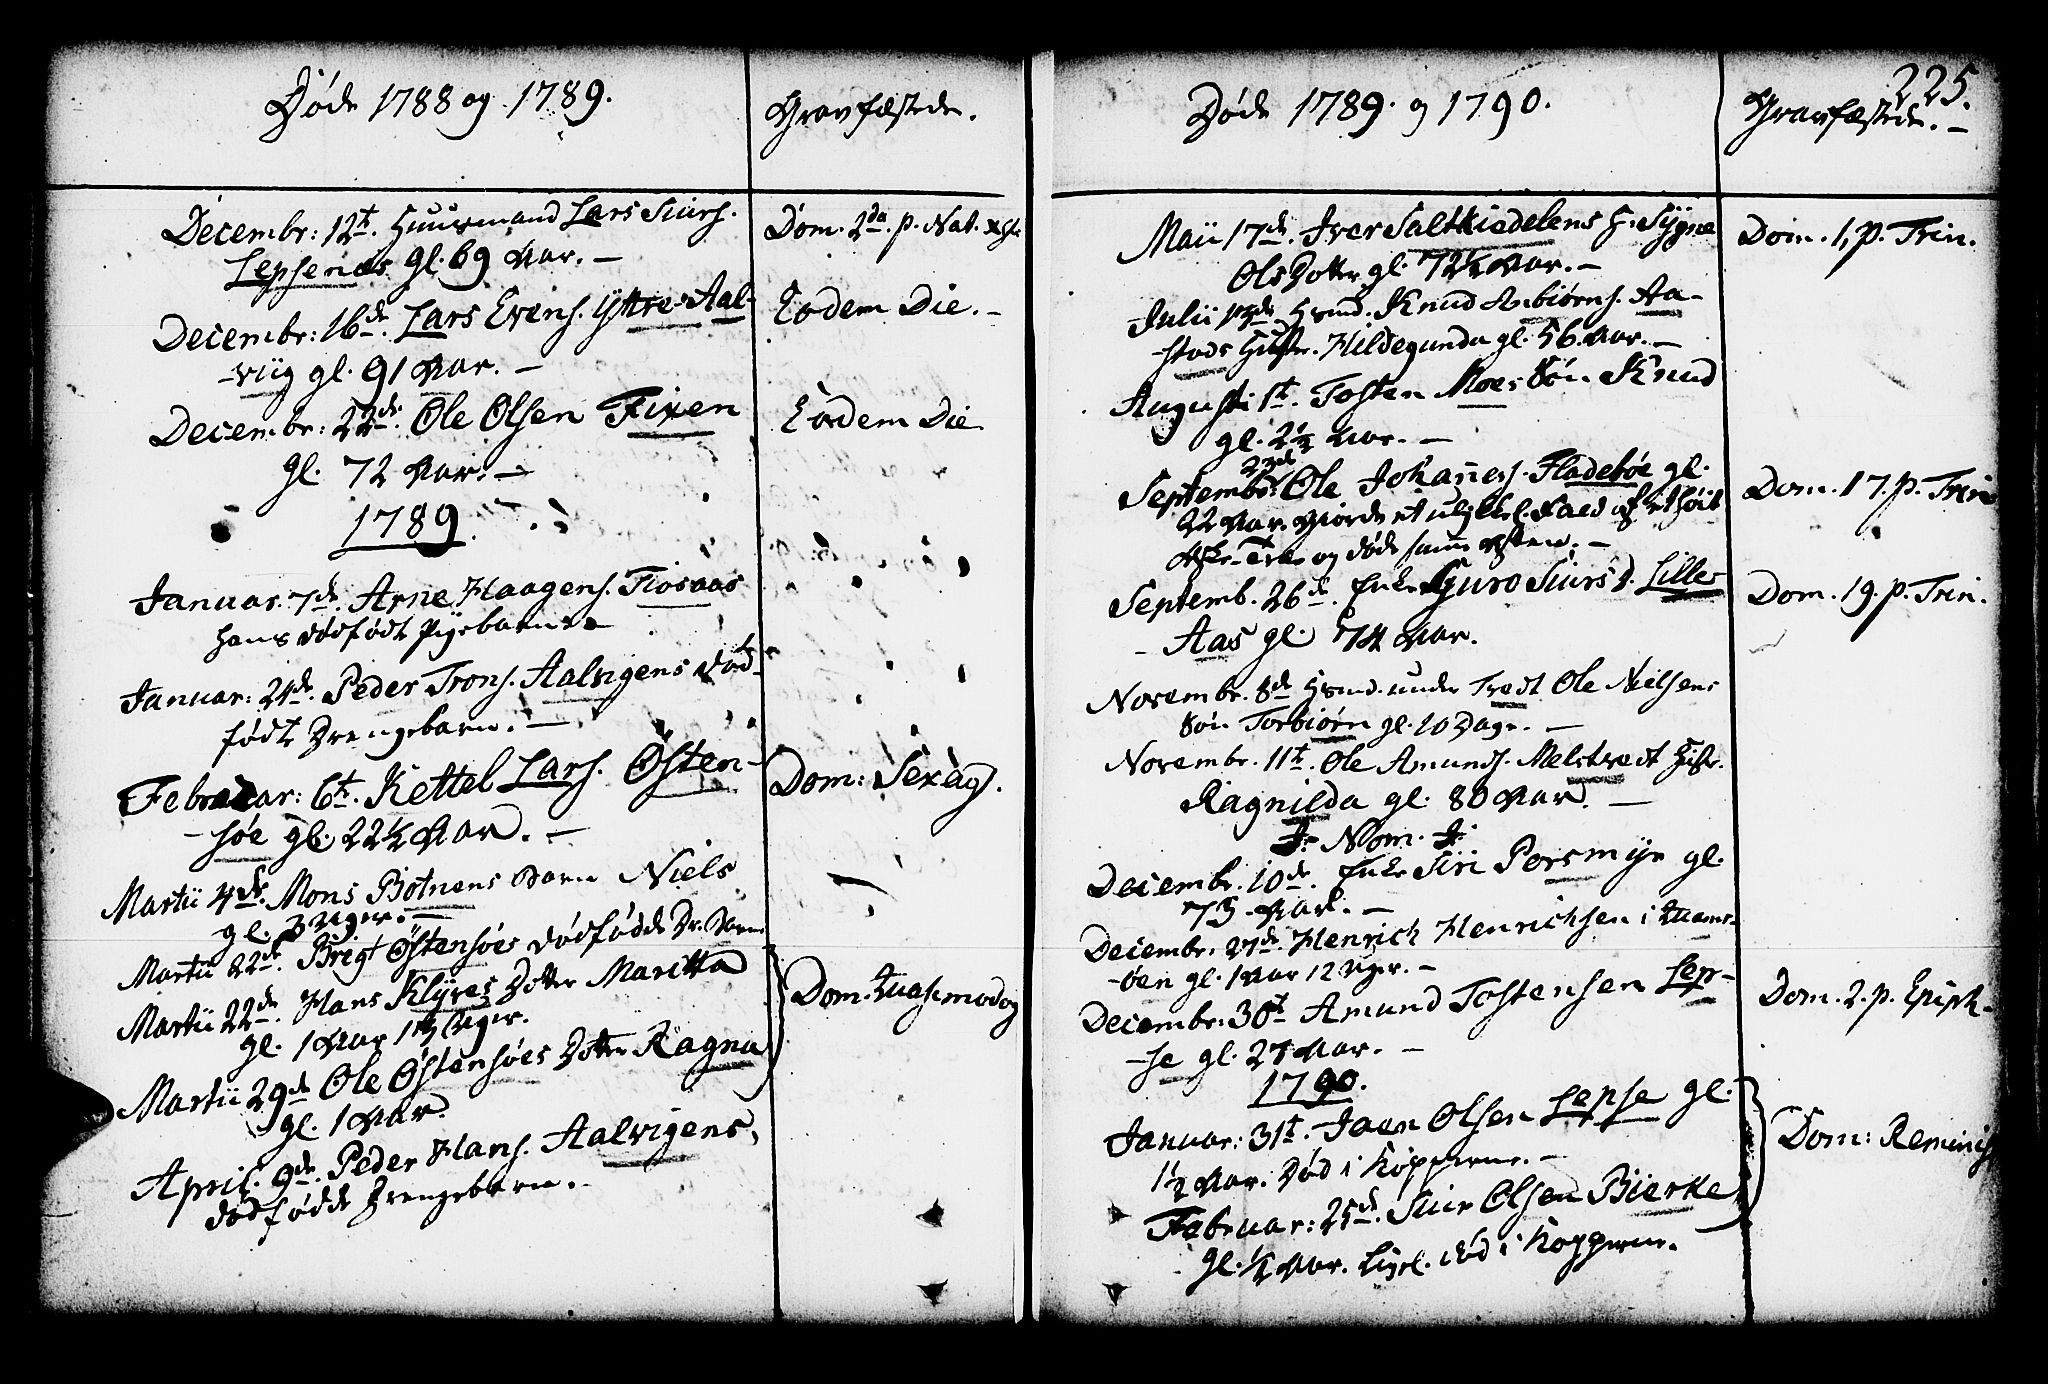 Døde 1788 og 1789.
Gravfæstede.
Decembr: 12t. Huusmand Lars Siurs.
Lepsenes gl. 69 Aar. –
Dom. 2da. p. Nat. Xsti
Decembr: 16de. Lars Evens. Yttre-Aal-
-viig gl. 91 Aar. –
Eodem Die. –
Decembr: 22de. Ole Olsen Fixen
gl. 72 Aar. –
Eodem Die
1789.
Januar. 7de. Arne Haagens. Tiosaas
hans dødfødt Pigebarn. –
Januar: 24de. Peder Trons. Aalvigens død-
fødte Drengebarn. –
Februar: 6t. Kettel Lars. Østen-
-søe gl. 22½ Aar. –
Dom: Sexag.
Martii 4de. Mons Botnens Barn Niels
gl. 3 Uger. –
Martii 22de. Brigt Østensøes dødfødde Dr. Barn
Martii 22de. Hans Klyves Dotter Maritta
gl. 1 Aar Uger.
Dom. Quasimodog
Martii 29de Ole Østensøes Dotter Ragna
gl. 1 Aar.
April. 9de. Peder Hans. Aalvigens,
dødfødde Drengebarn. –
225.
Døde 1789. og 1790.
Gravfæstede. –
Maii 17de. Iver Saltkiedelens H. Sygne
Ols Dotter gl. 72½ Aar. –
Dom. 1. p. Trin.
Julii 13de. Hsmd. Knud Anbiørns. Aa-
-stads Hustr. Hildegunda gl. 56 Aar. –
Augusti 1t. Tosten Moes Søn Knud
gl. 2½ Aar. –
23de
Septembr: Ole Johannes. Fladebøe gl.
22 Aar. giorde et ulykkel. Fald af et høit
Aske-Træ og døde samme Aften. –
Dom. 17. p. Trin
Septemb. 26de. Enke Guro Siurs D. Lille-
- Aas gl. 74 Aar.
Dom. 19. p. Trin.
Novembr. 8de Hsmd. under Tvedt Ole Nielsens
Søn Torbiørn gl. 10 Dage. –
Novembr. 11t. Ole Amunds. Melstvedt Hustr.
Ragnilda gl. 80 Aar. –
J. Nom. J.
Decembr. 10de. Enke Siri Porsmyr gl.
73 Aar. –
Decembr. 27de. Henrich Henrichsen i Quams-
-øen gl. 1 Aar 12 Uger. –
Decembr: 30t Amund Tostensen Lep-
-se gl. 27 Aar. –
Dom. 2. p. Epiph.
1790.
Januar: 31t. Joen Olsen Lepse gl.
1½ Aar. Død i Kopperne. –
Dom: Reminisc
Februar: 25de. Siur Olsen Bierke
gl. ½ Aar. Ligel. død i Kopperne.